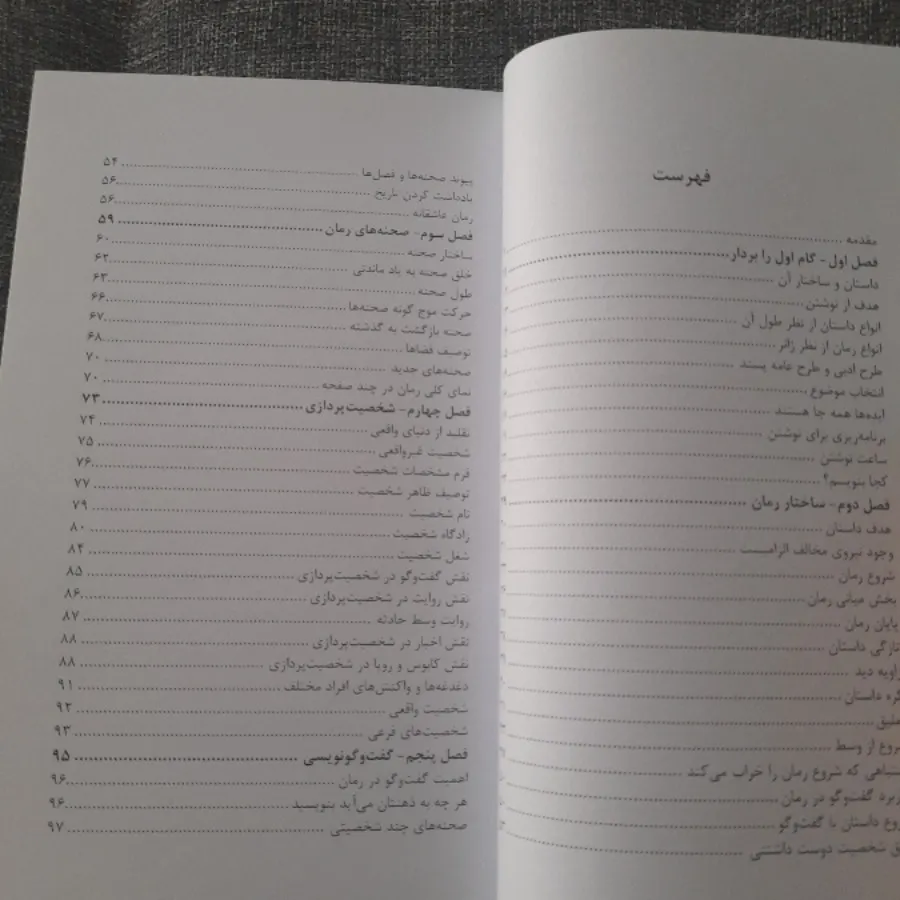 فهرست
مقدمه
فصل اول- گام اول را بردار
داستان و ساختار آن
هدف از نوشتن
انواع داستان از نظر طول آن
انواع رمان از نظر ژانر
طرح ادبی و طرح عامه پسند
انتخاب موضوع
ایده‌ها همه جا هستند
برنامه‌ریزی برای نوشتن
ساعت نوشتن
کجا بنویسم؟
فصل دوم- ساختار رمان
هدف داستان
وجود نیروی مخالف الزامیست
شروع رمان
بخش میانی رمان
پایان رمان
تازگی داستان
زاویه دید
گره داستان
تعلیق
شروع از وسط
که شروع رمان را خراب می‌کند
گفت‌وگو در رمان
داستان با گفت‌وگو
شخصیت دوست داشتنی
پیوند صحنه‌ها و فصل‌ها ۵۴
یادداشت کردن تاریخ ۵۶
رمان عاشقانه ۵۶
فصل سوم- صحنه‌های رمان ۵۹
ساختار صحنه ۶۰
خلق صحنه به یاد ماندنی ۶۲
طول صحنه ۶۳
حرکت موج گونه صحنه‌ها ۶۶
صحنه بازگشت به گذشته ۶۷
توصیف فضاها ۶۸
صحنه‌های جدید ۷۰
نمای کلی رمان در چند صفحه ۷۰
فصل چهارم- شخصیت‌پردازی ۷۳
تقلید از دنیای واقعی ۷۴
شخصیت غیرواقعی ۷۵
فرم مشخصات شخصیت ۷۶
توصیف ظاهر شخصیت ۷۷
نام شخصیت ۷۹
زادگاه شخصیت ۸۰
شغل شخصیت ۸۴
نقش گفت‌وگو در شخصیت‌پردازی ۸۵
نقش روایت در شخصیت‌پردازی ۸۶
روایت وسط حادثه ۸۷
نقش اخبار در شخصیت‌پردازی ۸۸
نقش کابوس و رویا در شخصیت‌پردازی ۸۸
دغدغه‌ها و واکنش‌های افراد مختلف ۹۱
شخصیت واقعی ۹۲
شخصیت‌های فرعی ۹۳
فصل پنجم- گفت‌وگونویسی ۹۵
اهمیت گفت‌وگو در رمان ۹۶
هر چه به ذهنتان می‌آید بنویسید ۹۶
صحنه‌های چند شخصیتی ۹۷